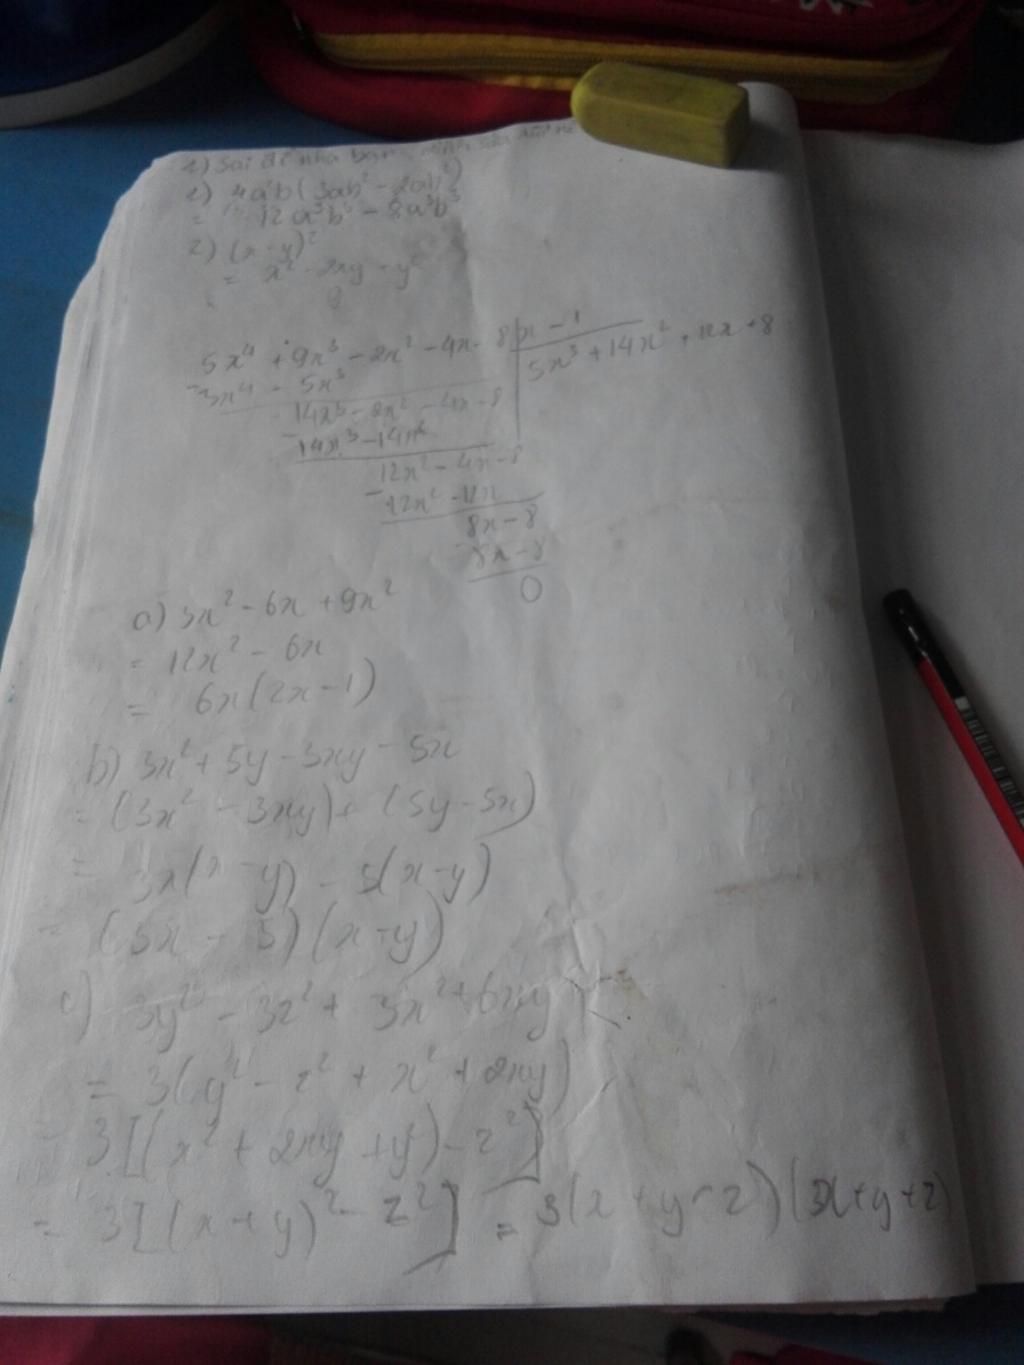 1) Sai đề nha bạn
2) 4a²b(3ab² - 2ab²)
= 12a³b³ - 8a³b³
2) (x - y)²
= x² - 2xy + y²
5x⁴ + 9x³ - 2x² - 4x - 8 | x - 1
- 5x⁴ - 5x³ | 5x³ + 14x² + 12x + 8
14x³ - 2x² - 4x - 8
- 14x³ - 14x²
12x² - 4x - 8
- 12x² - 12x
8x - 8
- 8x - 8
0
a) 3x² - 6x + 9x²
= 12x² - 6x
= 6x(2x - 1)
b) 3x² + 5y - 3xy - 5x
= (3x² - 3xy) + (5y - 5x)
= 3x(x - y) - 5(x - y)
= (3x - 5)(x - y)
c) 3y² - 3z² + 3x² + 6xy
= 3(y² - z² + x² + 2xy)
= 3[(x² + 2xy + y²) - z²]
= 3[(x + y)² - z²] = 3(x + y - z)(x + y + z)